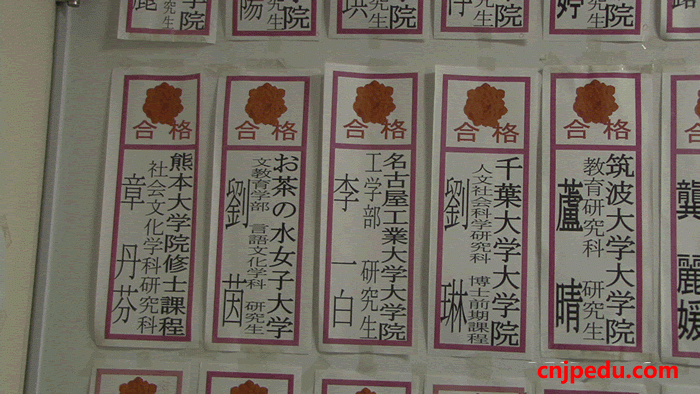 学院
研究生
学院
研究生
学院
研究生
学院
研究生
婷
合格
熊本大学院修士課程
社会文化学科研究科
章 丹芬
合格
お茶の水女子大学
文教育学部 言語文化学科 研究生
劉 茵
合格
名古屋工業大学大学院
工学部 研究生
李 一白
合格
千葉大学大学院
人文社会科学研究科 博士前期課程
劉 琳
合格
筑波大学大学院
教育研究科 研究生
蘆 晴
龔 麗媛
cnjpedu.com